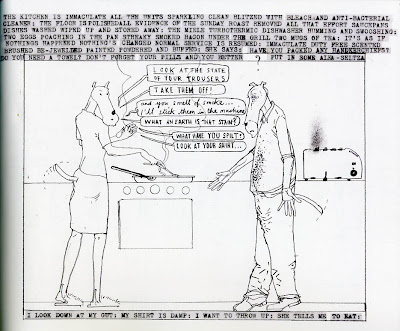 THE KITCHEN IS IMMACULATE ALL THE UNITS SPARKLING CLEAN BLITZED WITH BLEACH AND ANTI-BACTERIAL
CLEANER; THE FLOOR IS POLISHED: ALL EVIDENCE OF THE SUNDAY ROAST REMOVED ALL THAT EFFORT SAUCEPANS
DISHES WASHED WIPED UP AND STORED AWAY: THE MIELE TURBOTHERMIC DISHWASHER HUMMING AND SWOOSHING:
TWO EGGS POACHING IN THE PAN STREAKY SMOKED BACON UNDER THE GRILL TWO MUGS OF TEA: IT'S AS IF
NOTHINGS HAPPENED NOTHING'S CHANGED NORMAL SERVICE IS RESUMED: IMMACULATE DUTY FREE SCENTED
BRUSHED BE-JEWELLED PAINTED POWDERED AND BUFFED: SHE SAYS: HAVE YOU PACKED ANY HANKERCHIEFS?
DO YOU NEED A TOWEL? DON'T FORGET YOUR PILLS AND YOU BETTER PUT IN SOME ALKA-SELTZA
LOOK AT THE STATE
OF YOUR TROUSERS
TAKE THEM OFF!
and you smell of smoke...
I'll stick them in the machine
WHAT ON EARTH IS THAT STAIN?
WHAT HAVE YOU SPILT?
LOOK AT YOUR SHIRT...
I LOOK DOWN AT MY GUT: MY SHIRT IS DAMP: I WANT TO THROW UP: SHE TELLS ME TO EAT: